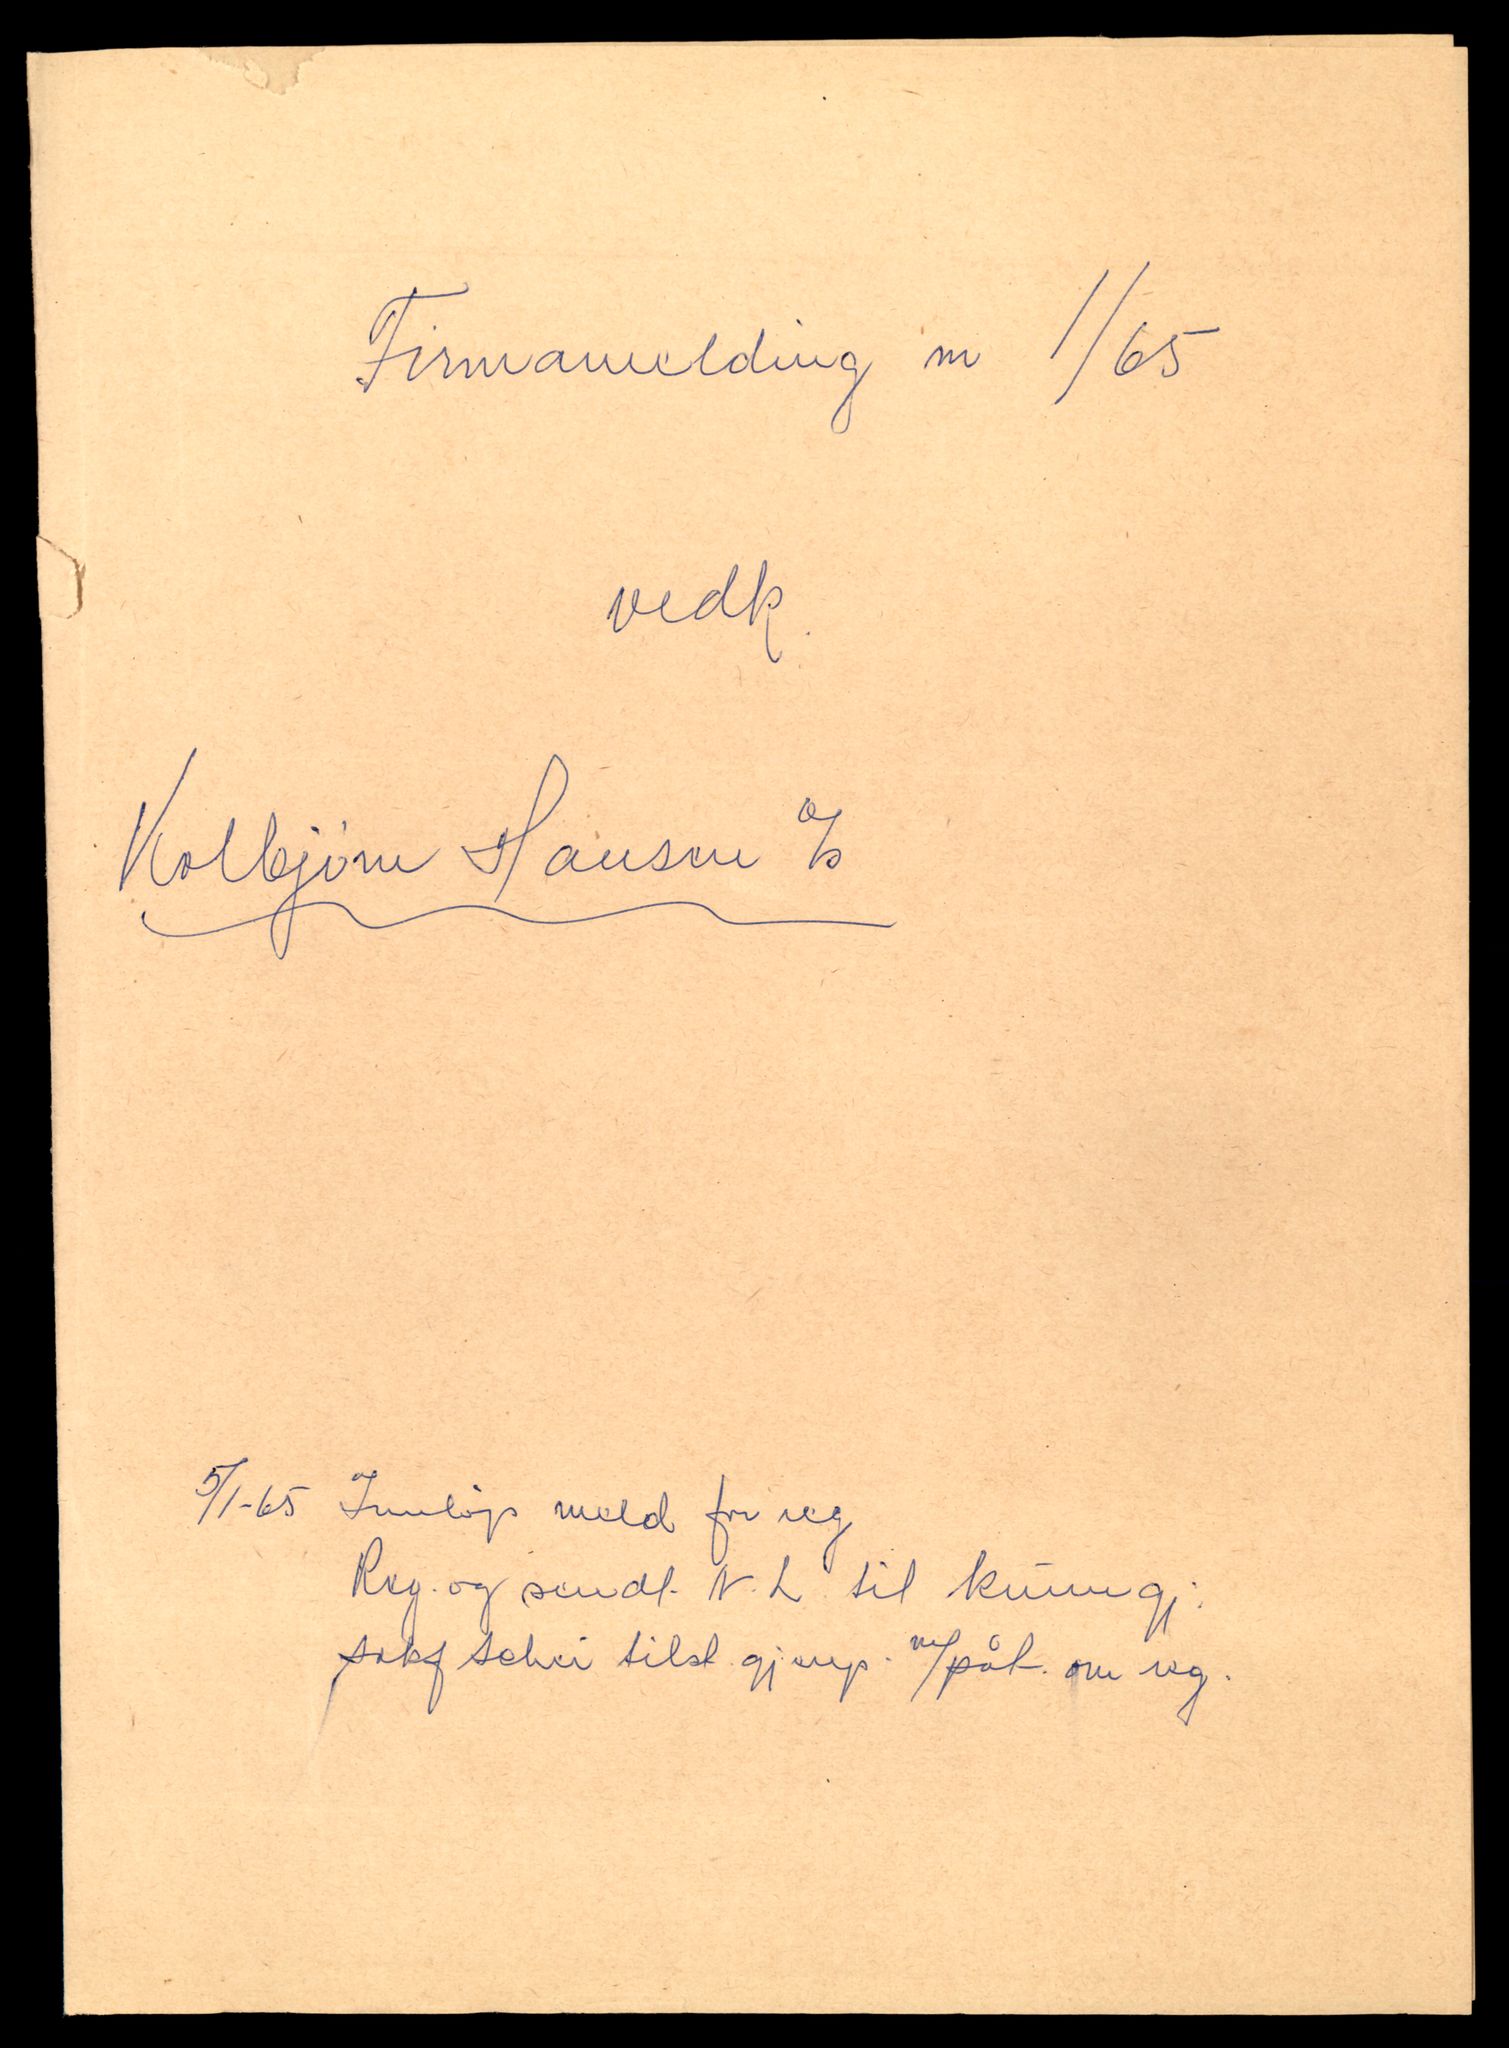 Firmamelding nr 1/65
vedk.
Kolbjørn Hansen A/S
5/1-65 Innløp meld for reg
Reg. og sendt N.L. til kunngj.
sakf Schei tilst. gjenp. m/påt. om reg.